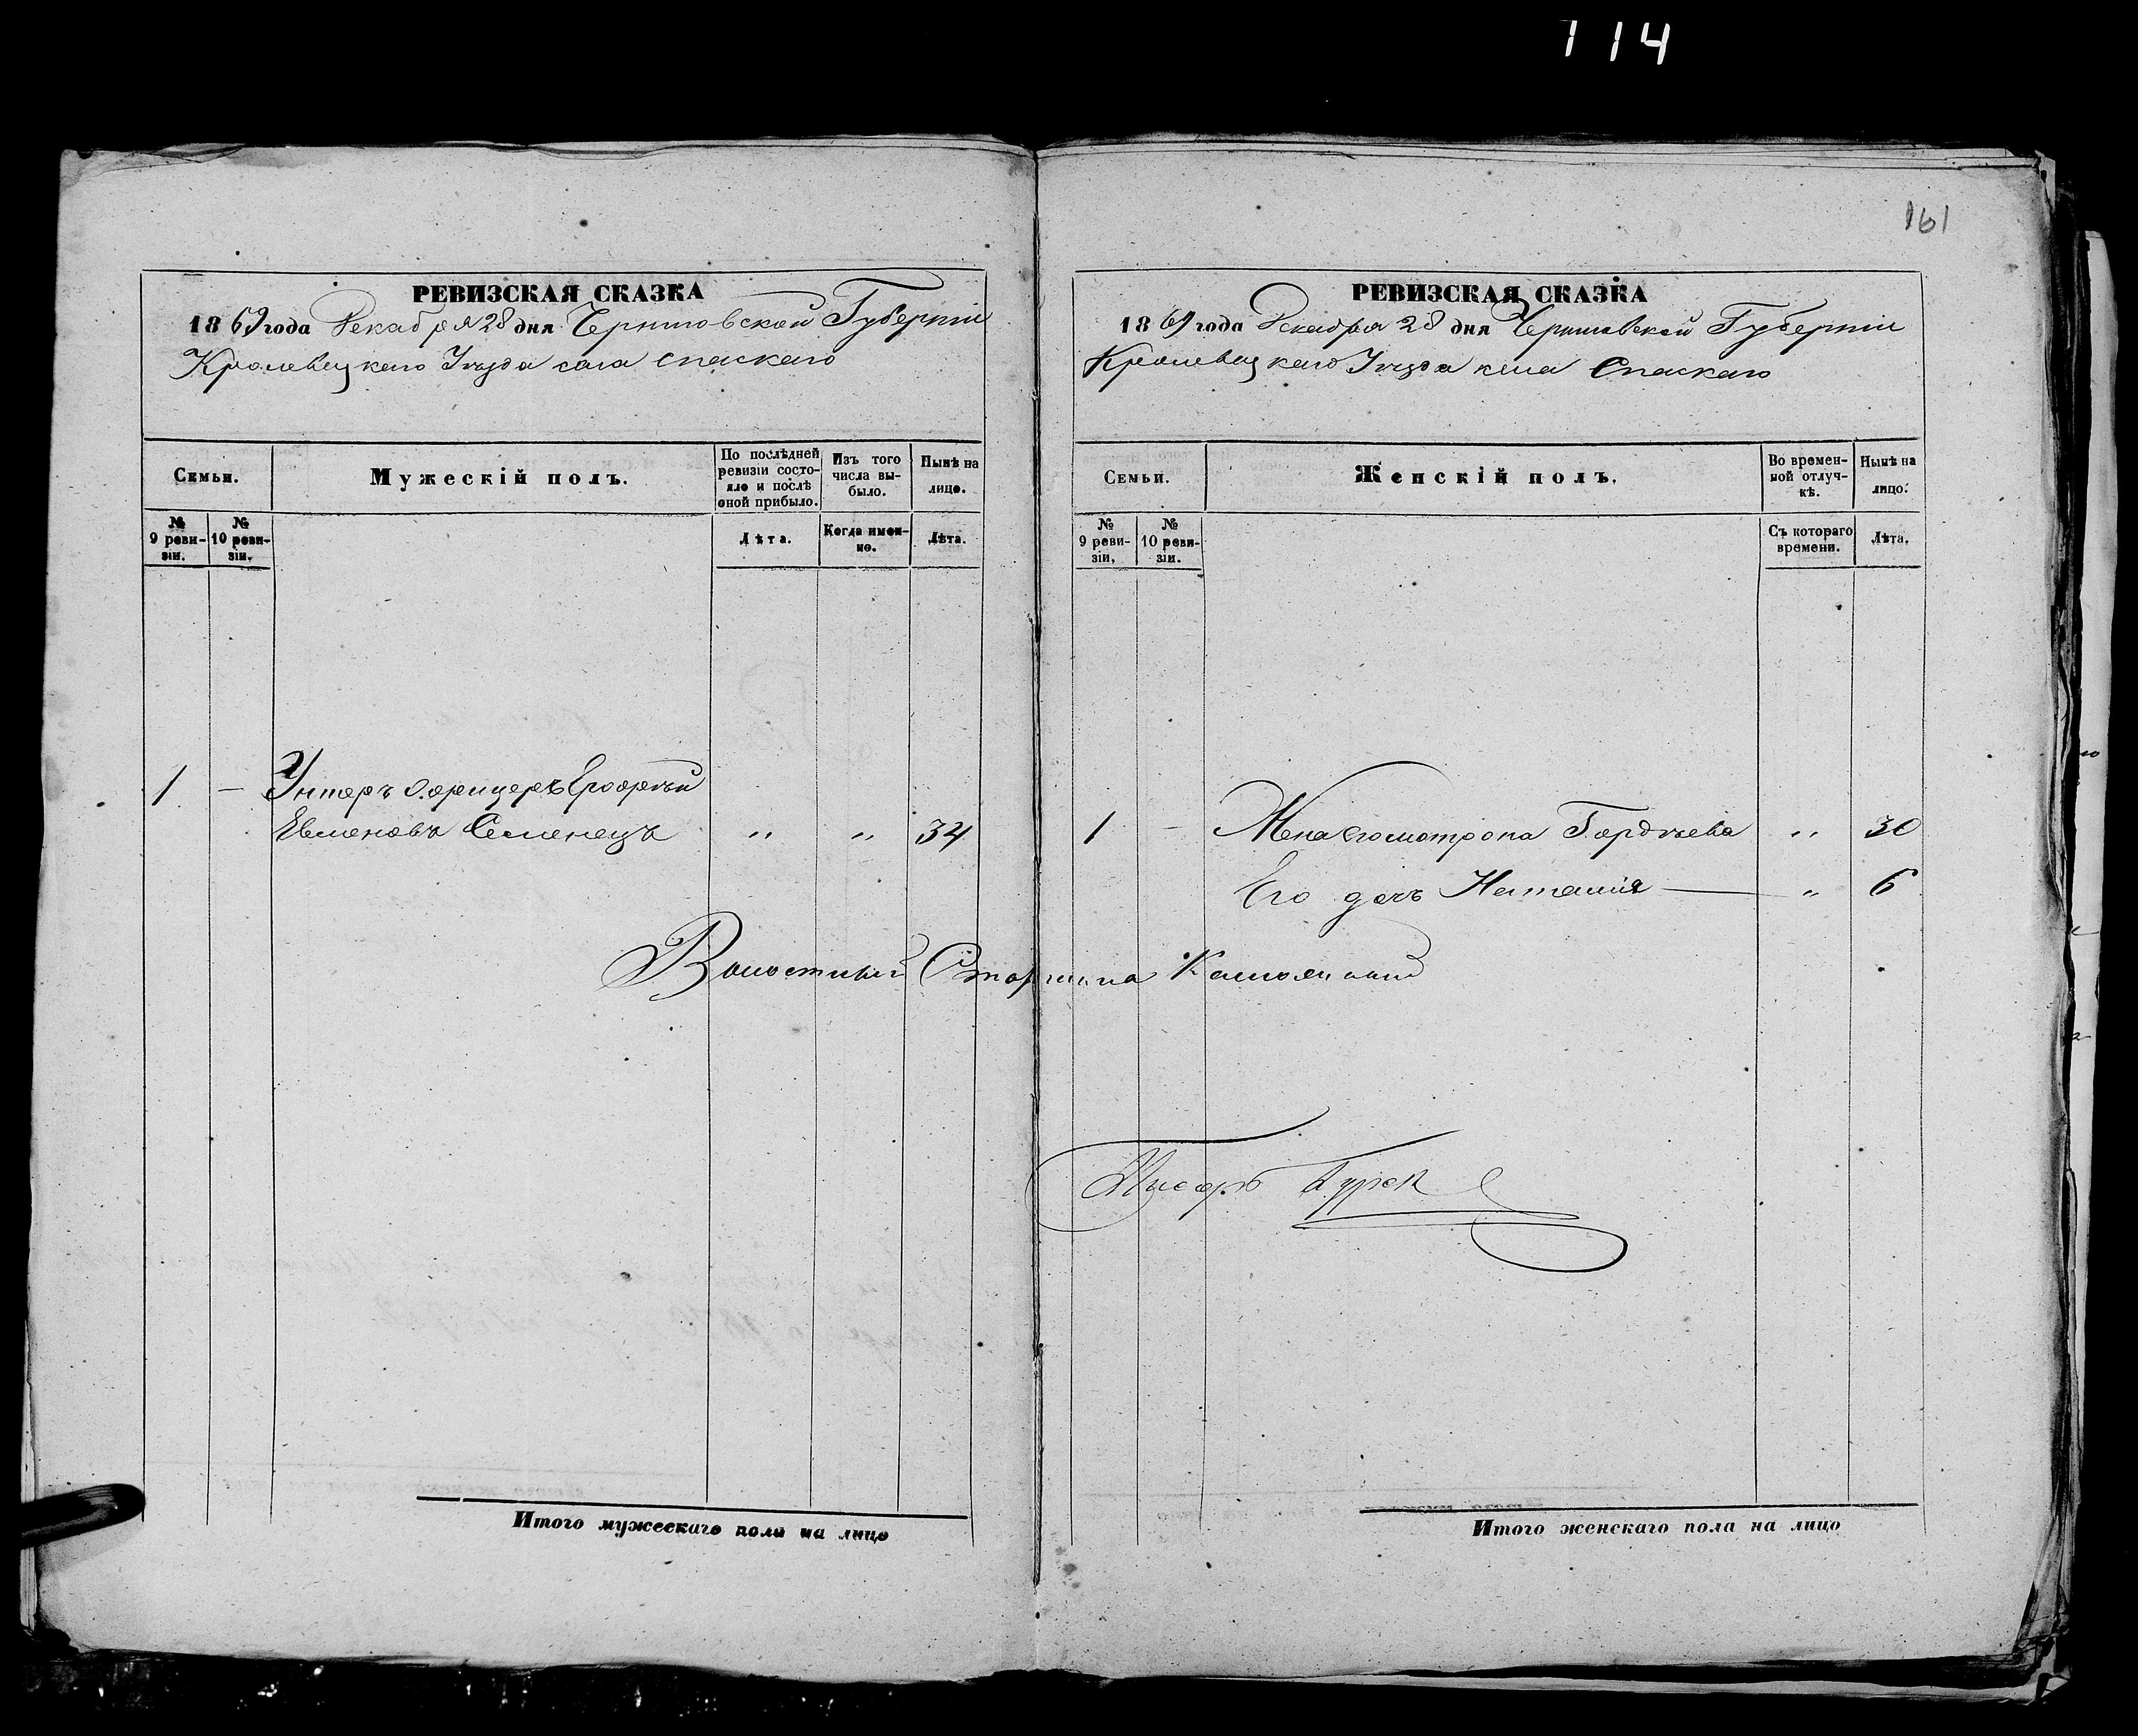 114
161
РЕВИЗСКАЯ СКАЗКА
1869 года Декабря 28 дня Черниговской Губерніи
Кролевецкаго Уѣзда села Спаскаго
Семьи.
Мужескій полъ.
По послѣдней ревизіи состояло и послѣ оной прибыло.
Изъ того числа выбыло.
Нынѣ на лицо.
№ 9 ревизіи.
№ 10 ревизіи.
Лѣта.
Когда именно.
Лѣта.
1 — Унтеръ Офицеръ Ерофѣй
Евменовъ Семенецъ " " 34
Волостный Старшина
Итого мужескаго пола на лицо
РЕВИЗСКАЯ СКАЗКА
1869 года Декабря 28 дня Черниговской Губерніи
Кролевецкаго Уѣзда села Спаскаго
Семьи.
Женскій полъ.
Во временной отлучкѣ.
Нынѣ на лицо.
№ 9 ревизіи.
№ 10 ревизіи.
Съ котораго времени.
Лѣта.
1 - Жена его Гордѣева " 30
Его дочь Наталія — " 6
Писарь
Итого женскаго пола на лицо